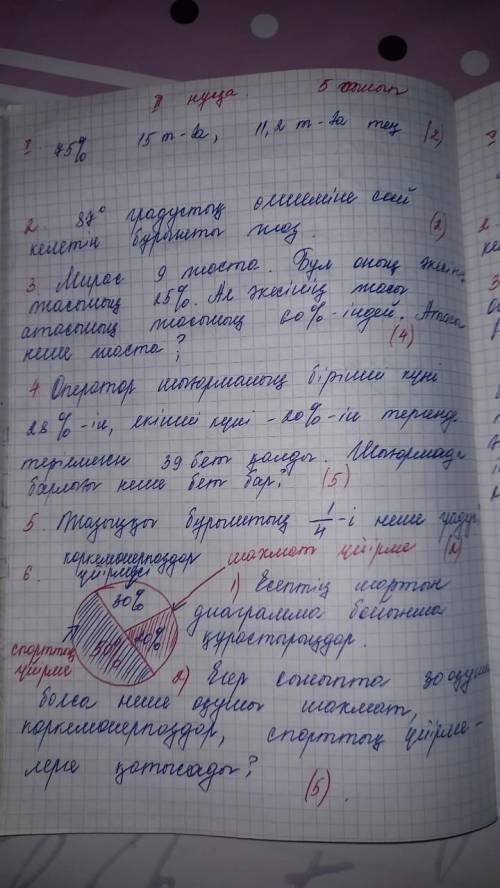 II нұсқа. 5 сынып
1. 75% 15 т-ға, 11,2 т-ға тең (2)
2. 87° градустың өлшеміне сай (2)
келетін бұрышты жаз.
3. Мирас 9 жаста. Бұл оның
жасының 25%. Ал әкесінің жасы
атасының жасының 60%-індей. Атасы
неше жаста? (4)
4 Оператор шығарманың бірінші күні
28%-ін, екінші күні - 20%-ін
39 бет қалды.
барлығы неше бет бар? (5)
5. Жазыңқы бұрыштың 1/4-і неше
көркемөнерпаздар үйірмесі
шахмат үйірме (2)
6. 30% 20% 50%
спорттық үйірме
1) Есептің шартын
диаграмма бойынша
құрастырыңдар.
2) Егер сыныпта 30 оқушы
болса неше оқушы шахмат,
көркемөнерпаздар, спорттық үйірме-
лерге қатысады?
(5).